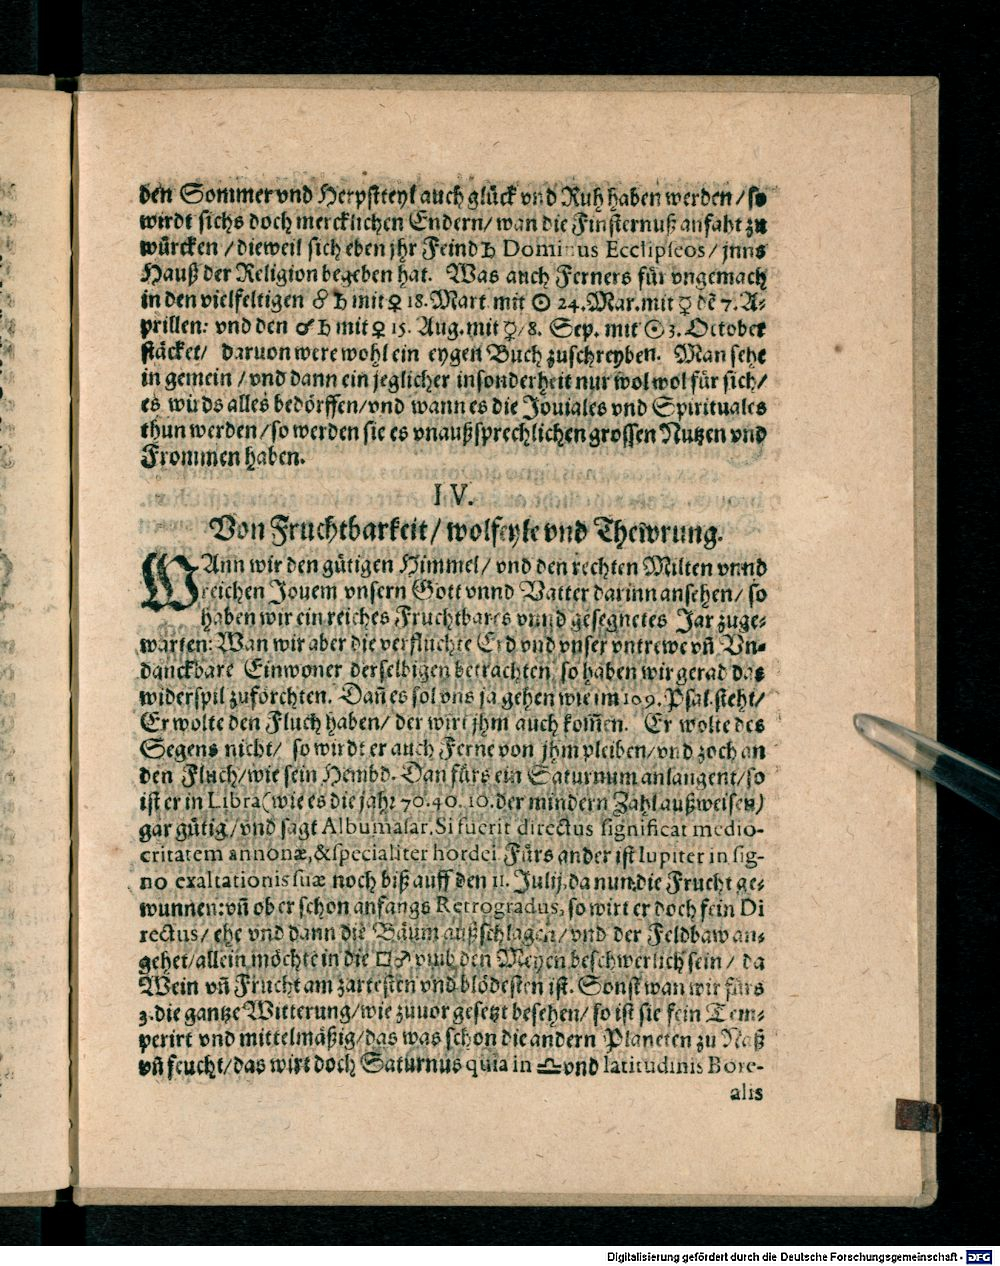 den Sommer vnd Herpstteyl auch glück vnd Ruh haben werden / so
wirdt sichs doch mercklichen Endern / wan die Finsternuß anfaht zu
würcken / dieweil sich eben jhr Feind ♄ Dominus Ecclipseos / inns
Hauß der Religion begeben hat. Was auch Ferners für vngemach
in den vielfeltigen ☍ ♄ mit ♀ 18. Mart. mit ☉ 24. Mar. mit ☿ dē 7. A-
prillen: vnd den ☌ ♄ mit ♀ 15. Aug. mit ☿ / 8. Sep. mit ☉ 3. October
stäcket / daruon were wohl ein eygen Buch zuschreyben. Man sehe
in gemein / vnd dann ein jeglicher insonderheit nur wol wol für sich /
es würds alles bedörffen / vnd wann es die Jouiales vnd Spirituales
thun werden / so werden sie es vnaußsprechlichen grossen Nutzen vnd
Frommen haben.
IV.
Von Fruchtbarkeit / wolfeyle vnd Thewrung.
WAnn wir den gütigen Himmel / vnd den rechten Milten vnnd
reichen Jouem vnsern Gott vnnd Vatter darinn ansehen / so
haben wir ein reiches Fruchtbares vnnd gesegnetes Jar zuge-
warten: Wan wir aber die verfluchte Erd vnd vnser vntrewe vñ Vn-
danckbare Einwoner derselbigen betrachten, so haben wir gerad das
widerspil zuförchten. Dañ es sol vns ja gehen wie im 109. Psal. steht /
Er wolte den Fluch haben / der wirt jhm auch kom̃en. Er wolte des
Segens nicht / so wirdt er auch Ferne von jhm pleiben / vnd zoch an
den Fluch / wie sein Hembd. Dan fürs ein Saturnum anlangent / so
ist er in Libra (wie es die jahr 70. 40. 10. der mindern Zahl außweisen)
gar gütig / vnd sagt Albumasar, Si fuerit directus significat medio-
critatem annonæ, & specialiter hordei. Fürs ander ist Iupiter in sig-
no exaltationis suæ noch biß auff den 11. Julij. da nun die Frucht ge-
wunnen: vñ ob er schon anfangs Retrogradus, so wirt er doch fein Di
rectus / ehe vnd dann die Bäum außschlagen / vnd der Feldbaw an-
gehet / allein möchte in die □ ♂ vmb den Meyen beschwerlich sein / da
Wein vñ Frucht am zartesten vnd blödesten ist. Sonst wan wir fürs
3. die gantze Witterung / wie zuuor gesetzt besehen / so ist sie fein Tem-
perirt vnd mittelmäßig / das was schon die andern Planeten zu Naß
vñ feucht / das wirt doch Saturnus quia in ♎ vnd latitudinis Bore-
alis
Digitalisierung gefördert durch die Deutsche Forschungsgemeinschaft - DFG